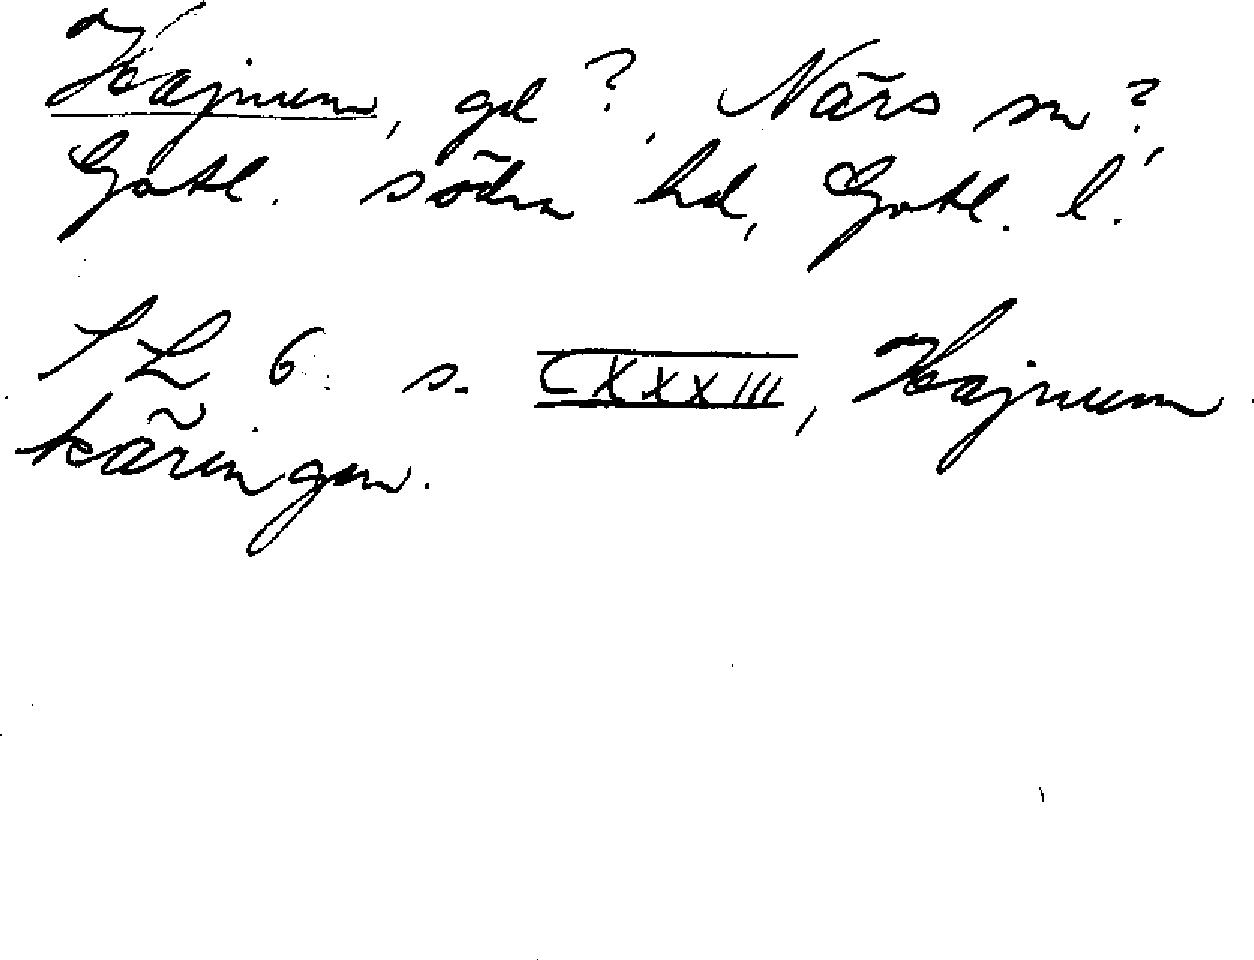 Hajnum, gd?, Närs sn?,
Gotl. södra hd, Gotl. l.
SL 6 s. CXXXIII, Hajnum
käringen.